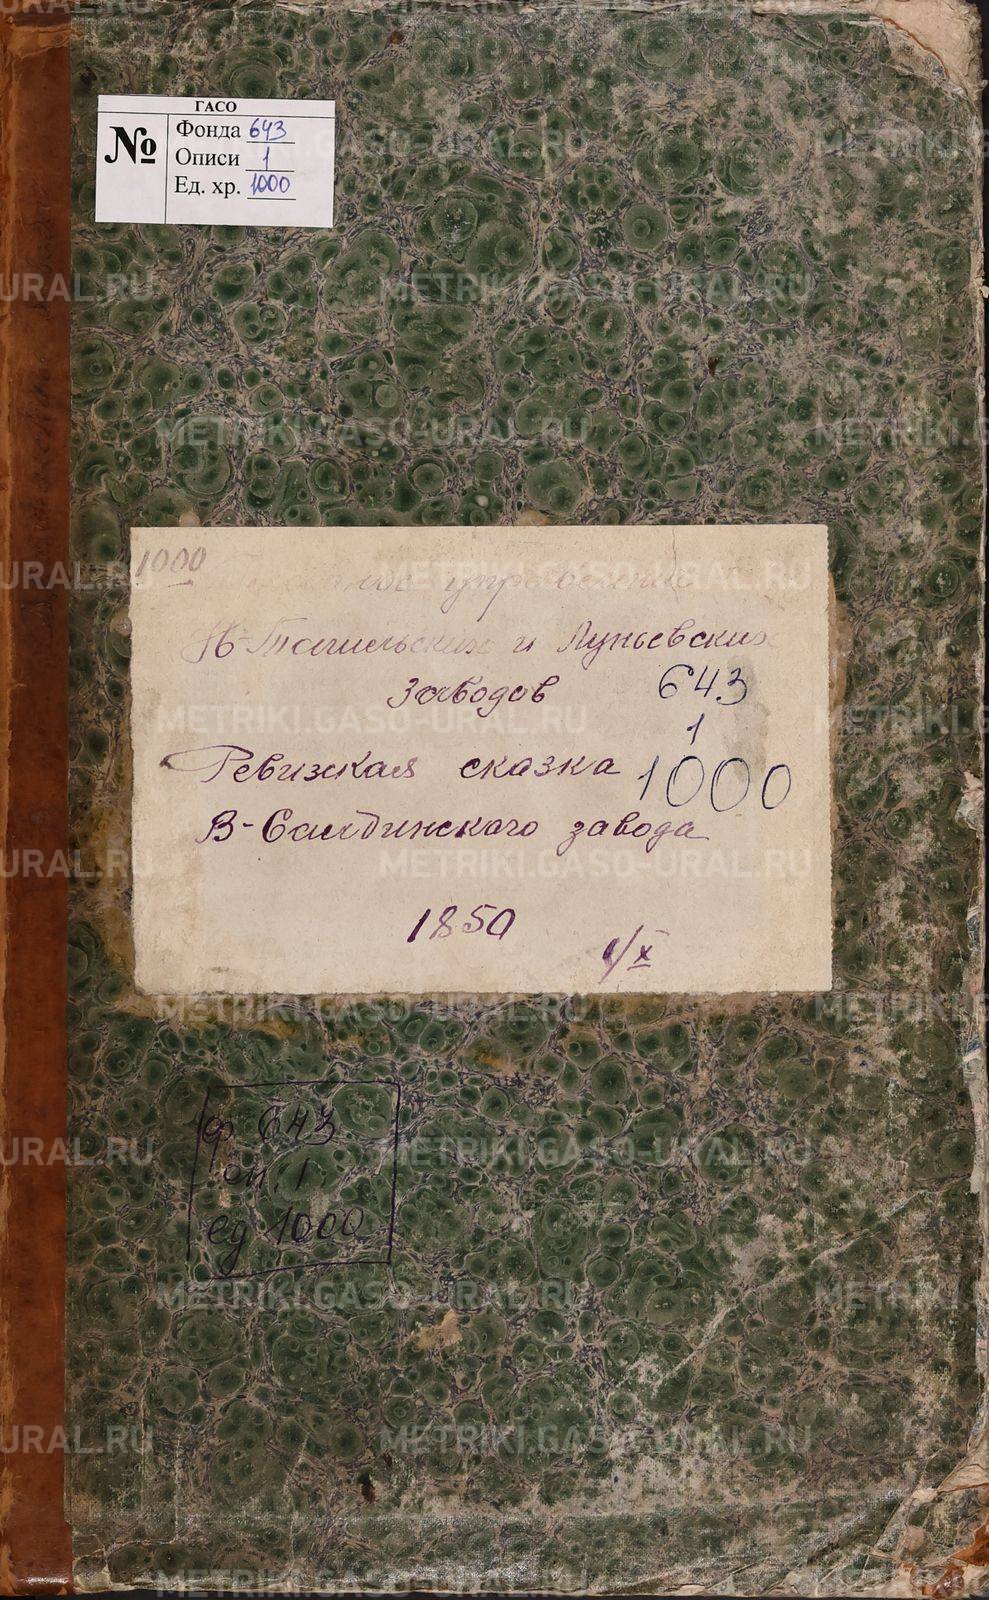 ГАСО
№
Фонда 643
Описи 1
Ед. хр. 1000
1000
управление
Н-Тагильских и Луньевских
заводов 643
1
Ревизская сказка 1000
В-Салдинского завода
1850
1/X
ф 643
оп. 1
ед 1000
METRIKI.GASO-URAL.RU